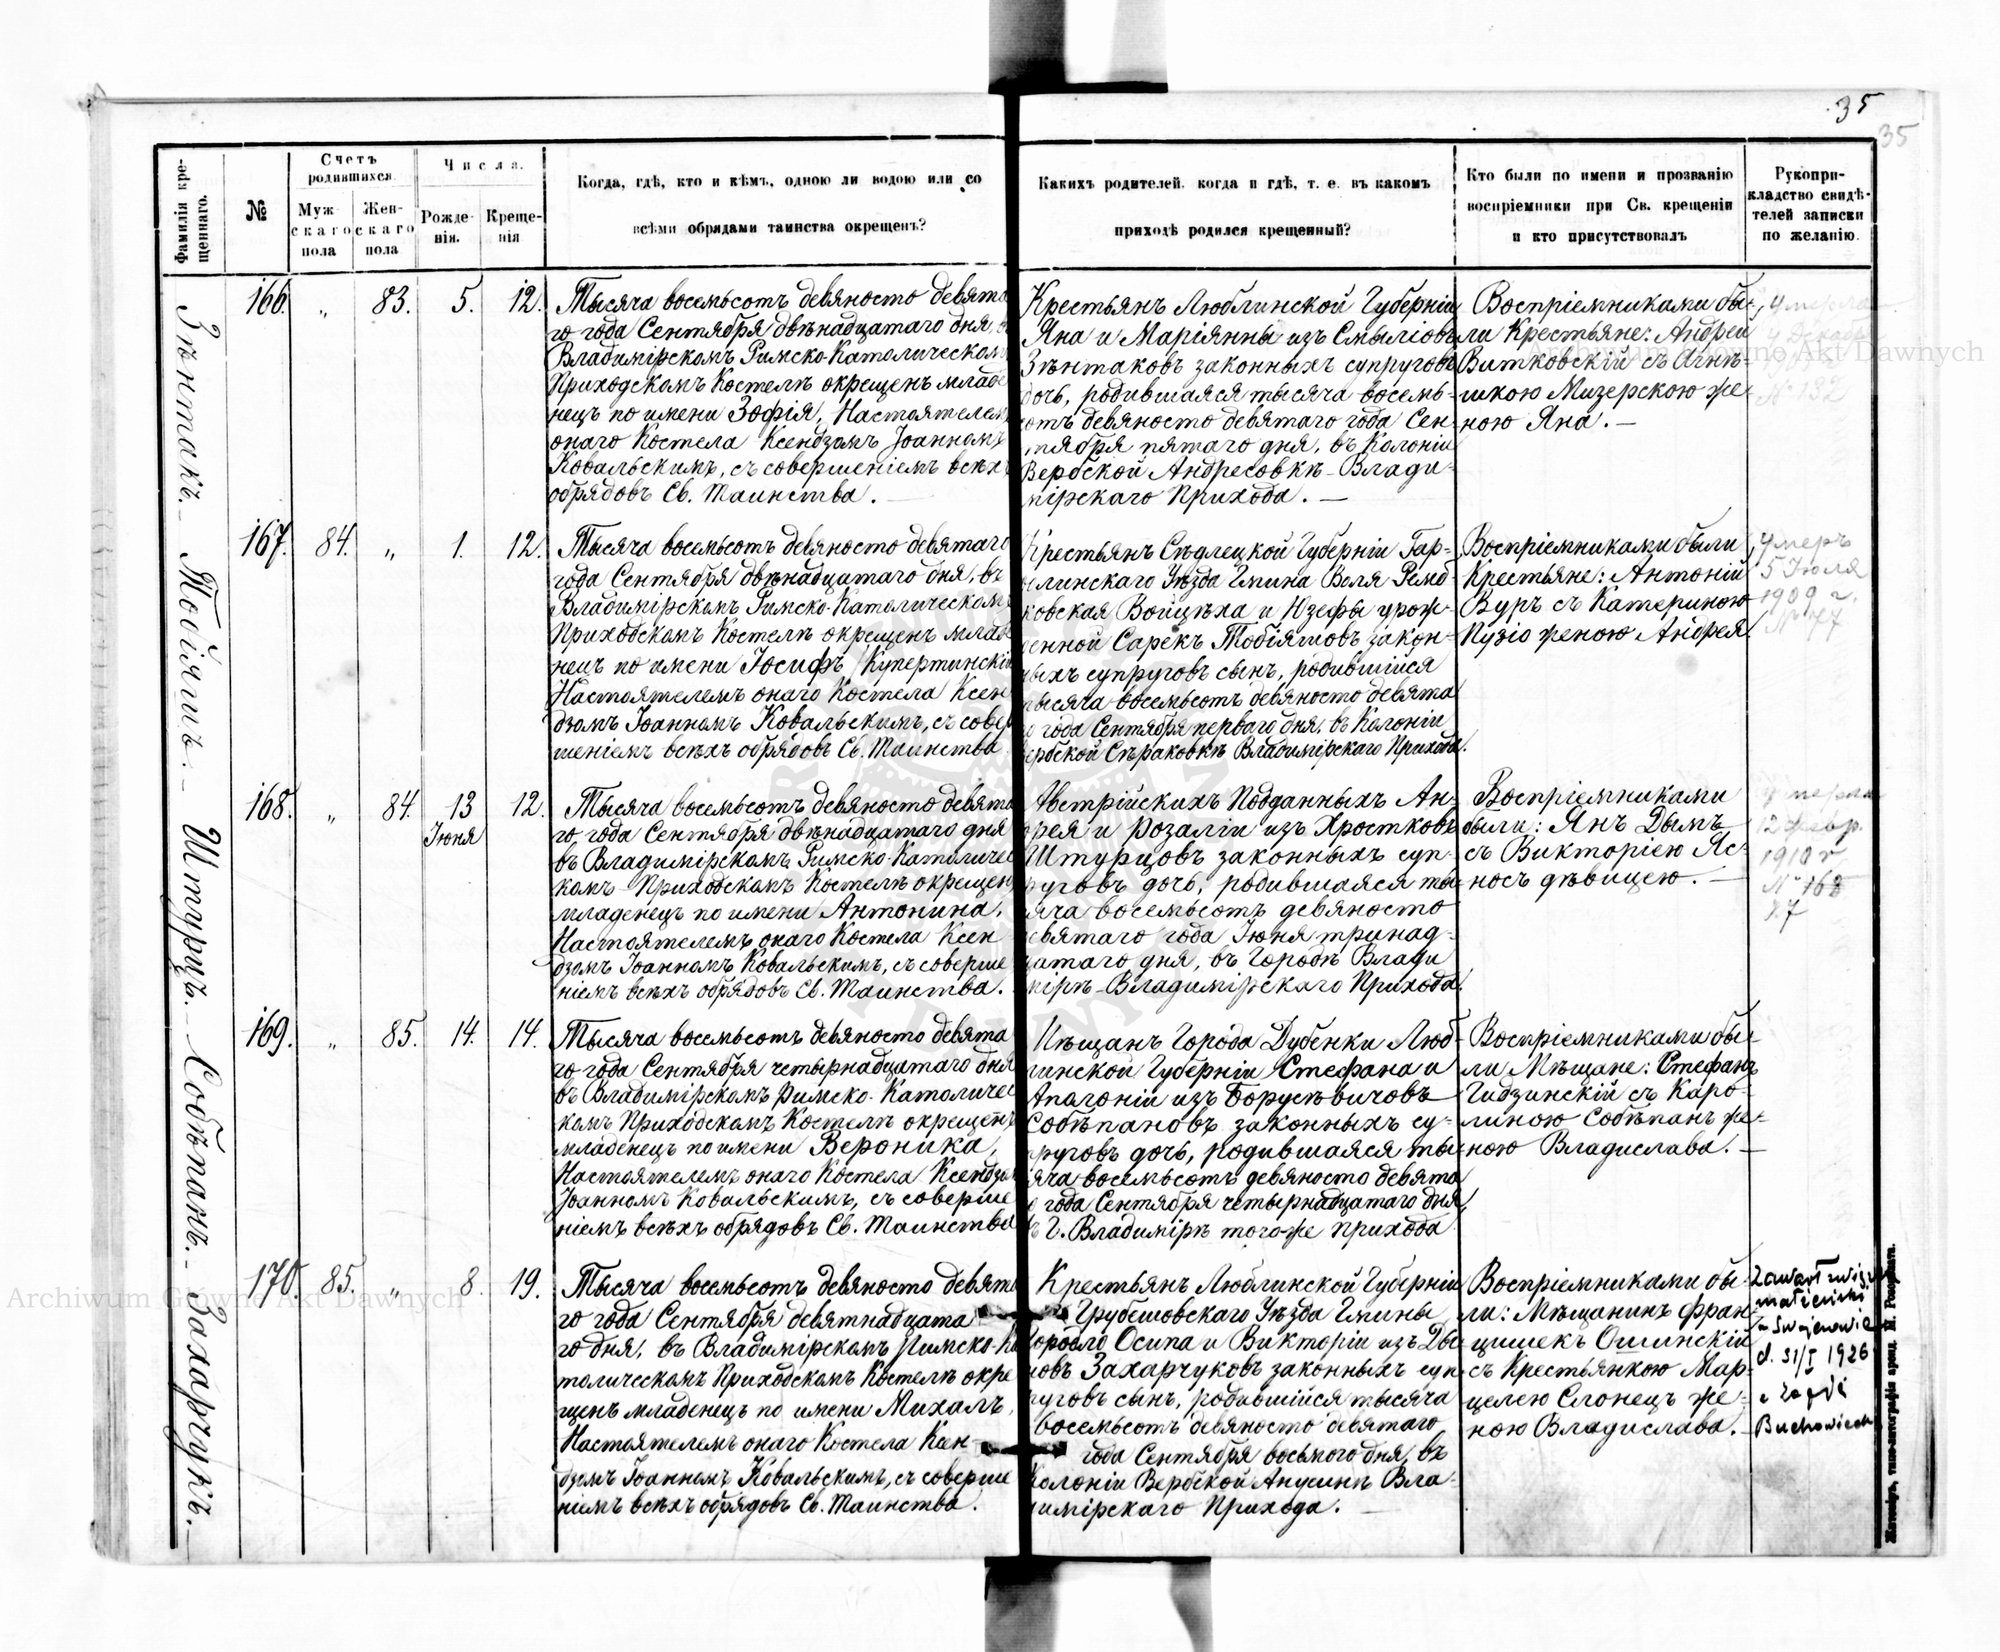 35
35
Фамилія кре-
щеннаго.
№
Счетъ
родившихся.
Муж-
скаго
пола
Жен-
скаго
пола
Числа.
Рожде-
нія.
Креще-
нія
Когда, гдѣ, кто и кѣмъ, одною ли водою или со
всѣми обрядами таинства окрещенъ?
Какихъ родителей, когда и гдѣ, т. е. въ какомъ
приходѣ родился крещенный?
Кто были по имени и прозванію
воспріемники при Св. крещеніи
и кто присутствовалъ
Рукопри-
кладство свидѣ-
телей записки
по желанію.
Зѣнтакъ.
166. „ 83. 5. 12.
Тысяча восемьсотъ девяносто девята
го года Сентября двѣнадцатаго дня, в
Владимірскомъ Римско-Католическом
Приходскомъ Костелѣ окрещенъ младе
нецъ по имени Зофія, Настоятелем
онаго Костела Ксендзомъ Іоанномъ
Ковальскимъ, съ совершеніемъ всѣхъ
обрядовъ Св. Таинства. —
Крестьянъ Люблинской Губерніи
Яна и Маріянны изъ Смыліовъ
Зѣнтаковъ законныхъ супруговъ
дочь, родившаяся тысяча восемь-
сотъ девяносто девятаго года Сен-
тября пятаго дня, въ Колоніи
Вербской Андресовкѣ Влади-
мірскаго Прихода. —
Воспріемниками бы-
ли Крестьяне: Андрей
Витковскій съ Агнѣ-
шкою Мизерскою же-
ною Яна. —
Умерла
4 Декабр
№ 132
Тобіяшъ.
167. 84. „ 1. 12.
Тысяча восемьсотъ девяносто девятаго
года Сентября двѣнадцатаго дня, въ
Владимірскомъ Римско-Католическомъ
Приходскомъ Костелѣ окрещенъ младе
нецъ по имени Іосифъ Купертинскій
Настоятелемъ онаго Костела Ксен
дзомъ Іоанномъ Ковальскимъ, съ совер
шеніемъ всѣхъ обрядовъ Св. Таинства
Крестьянъ Сѣдлецкой Губерніи Гар-
линскаго Уѣзда Гмина Воля Ремб-
ковская Войцѣха и Юзефы урож-
денной Сарекъ Тобіяшовъ закон-
ныхъ супруговъ сынъ, родившійся
тысяча восемьсотъ девяносто девята
го года Сентября перваго дня, въ Колоніи
Вербской Сѣраковкѣ Владимірскаго Прихода.
Воспріемниками были
Крестьяне: Антоній
Вуръ съ Катериною
Пузіо женою Андрея.
Умеръ
5 Іюля
1909 г.
№ 77
Штурцъ.
168. „ 84. 13 12.
Іюня
Тысяча восемьсотъ девяносто девята
го года Сентября двѣнадцатаго дня
въ Владимірскомъ Римско-Католичес
комъ Приходскомъ Костелѣ окрещен
младенецъ по имени Антонина,
Настоятелемъ онаго Костела Ксен
дзомъ Іоанномъ Ковальскимъ, съ соверше
ніемъ всѣхъ обрядовъ Св. Таинства.
Австрійскихъ Подданныхъ Ан-
дрея и Розаліи изъ Хростковъ
Штурцовъ законныхъ суп-
руговъ дочь, родившаяся ты-
сяча восемьсотъ девяносто
девятаго года Іюня тринад-
цатаго дня, въ Городѣ Влади
мірѣ Владимірскаго Прихода.
Воспріемниками
были: Янъ Дымъ
съ Викторіею Яс-
носъ дѣвицею. —
Умерла
12 февр.
1910 г
№ 168
27
Собѣпанъ.
169. „ 85. 14. 14.
Тысяча восемьсотъ девяносто девята
го года Сентября четырнадцатаго дня
въ Владимірскомъ Римско-Католичес
комъ Приходскомъ Костелѣ окрещенъ
младенецъ по имени Вероника,
Настоятелемъ онаго Костела Ксендзом
Іоанномъ Ковальскимъ, съ соверше
ніемъ всѣхъ обрядовъ Св. Таинства
Мѣщанъ Города Дубенки Люб-
линской Губерніи Стефана и
Апагоніи изъ Борусѣвичовъ
Собѣпановъ законныхъ су-
пруговъ дочь, родившаяся ты-
сяча восемьсотъ девяносто девята
го года Сентября четырнадцатаго дня,
въ Г. Владимірѣ тогоже прихода
Воспріемниками бы-
ли Мѣщане: Стефанъ
Гидзинскій съ Каро-
линою Собѣпанъ же-
ною Владислава. —
Захарчукъ.
170. 85. „ 8. 19.
Тысяча восемьсотъ девяносто девята
го года Сентября девятнадцата
го дня, въ Владимірскомъ Римско-Ка
толическомъ Приходскомъ Костелѣ окре
щенъ младенецъ по имени Михалъ,
Настоятелемъ онаго Костела Ксен
дзомъ Іоанномъ Ковальскимъ, съ соверше
ніемъ всѣхъ обрядовъ Св. Таинства.
Крестьянъ Люблинской Губерніи
Грубешовскаго Уѣзда Гмины
Городло Осипа и Викторіи изъ Ды
ковъ Захарчуковъ законныхъ суп
руговъ сынъ, родившійся тысяча
восемьсотъ девяносто девятаго
года Сентября восьмого дня, въ
Колоніи Вербской Анусинѣ Вла-
димірскаго Прихода. —
Воспріемниками бы-
ли: Мѣщанинъ Фран-
цишекъ Ошинскій
съ Крестьянкою Мар-
целею Слонецъ же-
ною Владислава. —
Zawarł związ
małżeński
w Swojczowie
d. 31/I 1926
z Zofją
Buchowiech
Житоміръ, типо-литографія аренд. М. Розенблата.
Archiwum Główne Akt Dawnych
Archiwum Główne Akt Dawnych